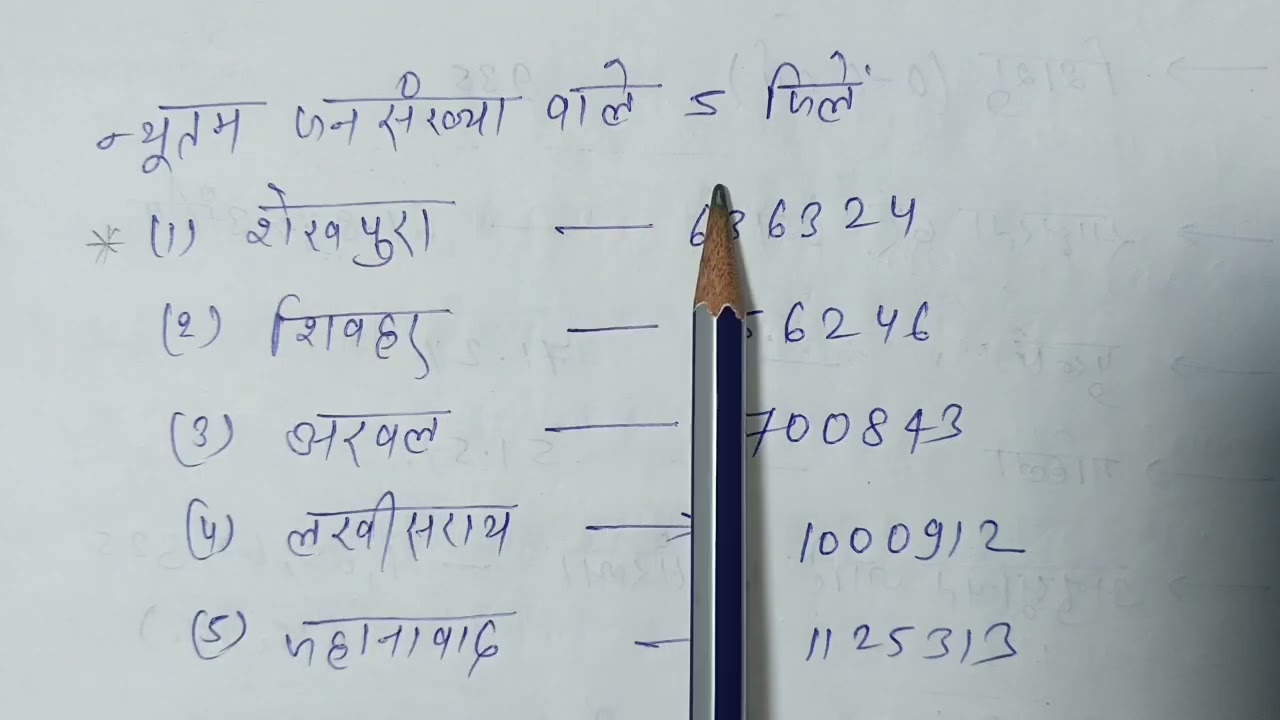 न्यूतम जनसंख्या वाले 5 जिलें
* (1) शेखपुरा — 636324
(2) शिवहर — 56246
(3) अरवल — 700843
(4) लखीसराय — 1000912
(5) जहानावाद — 1125313